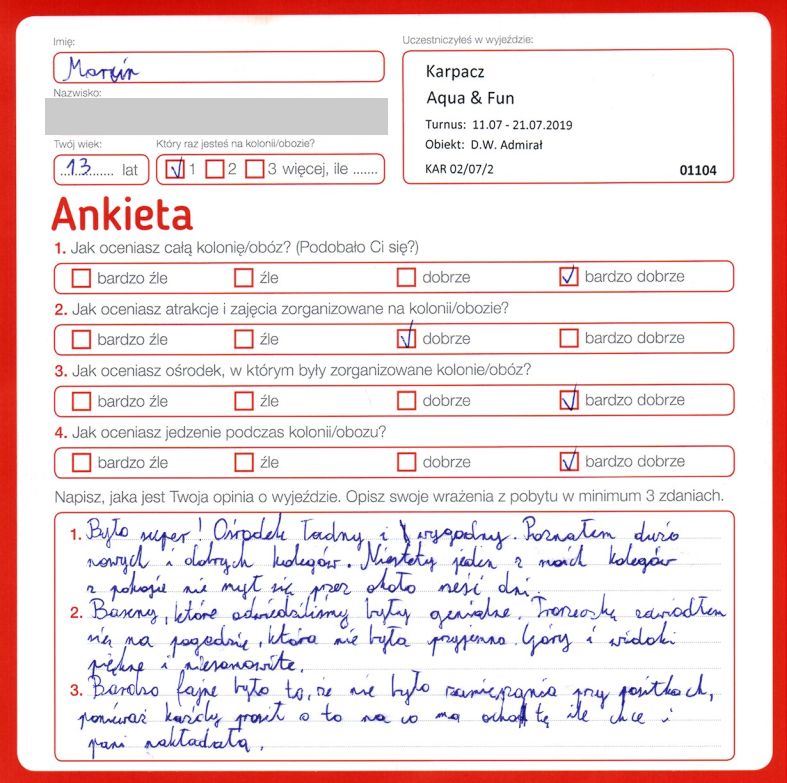 Imię:
Marcin
Nazwisko:
Twój wiek:
13 lat
Który raz jesteś na kolonii/obozie?
1 2 3 więcej, ile .......
Uczestniczyłeś w wyjeździe:
Karpacz
Aqua & Fun
Turnus: 11.07 - 21.07.2019
Obiekt: D.W. Admirał
KAR 02/07/2 01104
Ankieta
1. Jak oceniasz całą kolonię/obóz? (Podobało Ci się?)
bardzo źle źle dobrze bardzo dobrze
2. Jak oceniasz atrakcje i zajęcia zorganizowane na kolonii/obozie?
bardzo źle źle dobrze bardzo dobrze
3. Jak oceniasz ośrodek, w którym były zorganizowane kolonie/obóz?
bardzo źle źle dobrze bardzo dobrze
4. Jak oceniasz jedzenie podczas kolonii/obozu?
bardzo źle źle dobrze bardzo dobrze
Napisz, jaka jest Twoja opinia o wyjeździe. Opisz swoje wrażenia z pobytu w minimum 3 zdaniach.
1. Było super! Ośrodek ładny i wygodny. Poznałem dużo
nowych i dobrych kolegów. Niestety jeden z moich kolegów
z pokoju nie mył się przez około sześć dni
2. Baseny, które odwiedziliśmy były genialne. Troszeczkę zawiodłem
się na pogodzie, która nie była przyjemna. Góry i widoki
piękne i niesamowite.
3. Bardzo fajne było to, że nie było zamieszania przy posiłkach,
ponieważ każdy prosił o to na co ma ochotę ile chce i
pani nakładała.